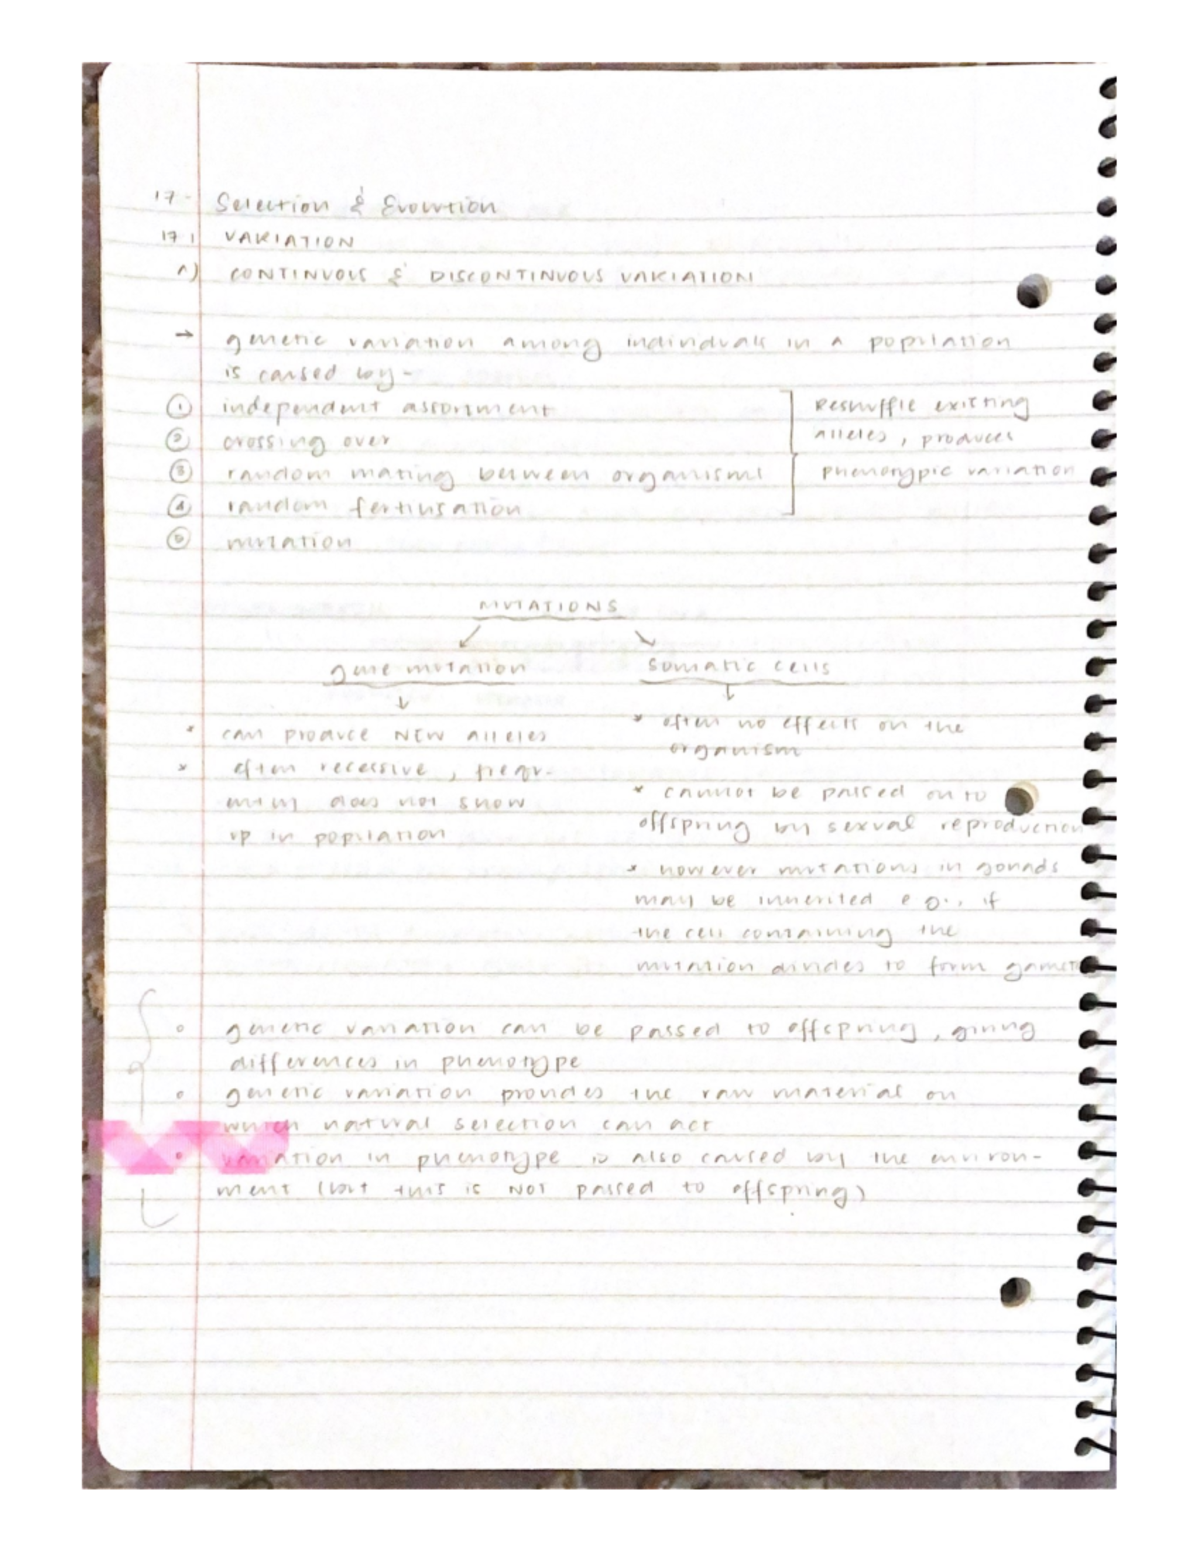 17 - Selection & Evolution
17.1 VARIATION
A) CONTINUOUS & DISCONTINUOUS VARIATION
→ genetic variation among individuals in a population
is caused by -
① independent assortment
② crossing over
③ random mating between organisms
④ random fertilisation
⑤ mutation
Reshuffle existing
alleles, produces
phenotypic variation
MUTATIONS
gene mutation
* can produce NEW alleles
* often recessive, frequ-
ently does not show
up in population
somatic cells
* often no effects on the
organism
* cannot be passed on to
offspring by sexual reproduction
* however mutations in gonads
may be inherited e.g., if
the cell containing the
mutation divides to form gamet
° genetic variation can be passed to offspring, giving
differences in phenotype
° genetic variation provides the raw material on
which natural selection can act
° variation in phenotype is also caused by the environ-
ment (but this is NOT passed to offspring)